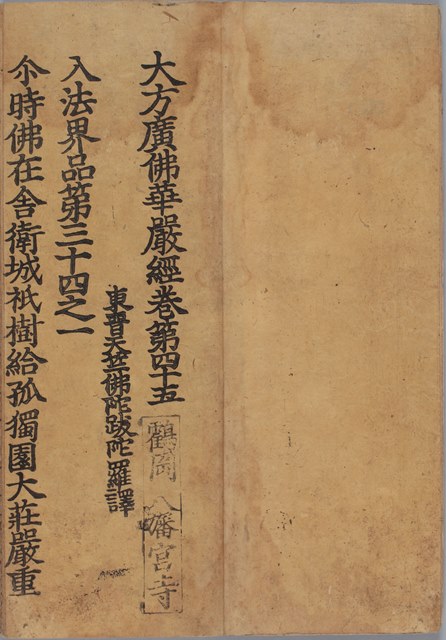 大方廣佛華嚴經卷第四十五
鶴岡八幡宮寺
東晋天竺佛陀跋陀羅譯
入法界品第三十四之一
尒時佛在舎衛城祇樹給孤獨園大莊嚴重